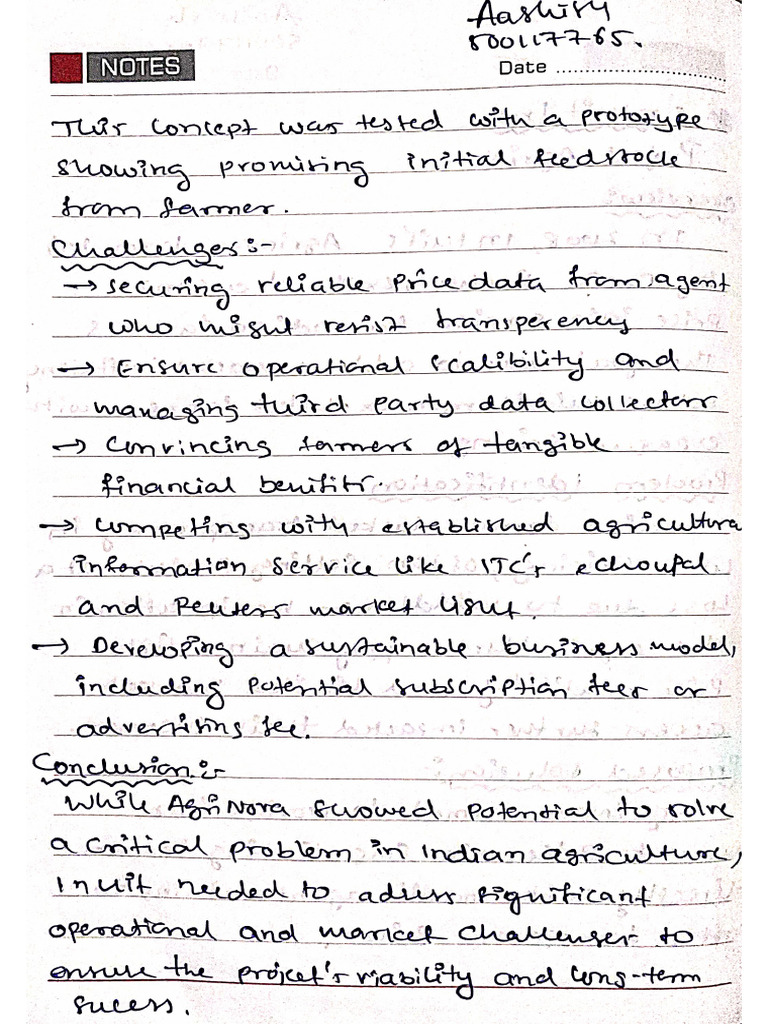 Aashish
500117765.
NOTES
Date ..............................
This concept was tested with a prototype
showing promising initial feedstock
from farmer.
Challenges:-
→ securing reliable price data from agent
who might resist transperency
→ Ensure operational scalibility and
managing third party data collectors
→ Convincing farmers of tangible
financial benifits.
→ Competing with established agricultural
information service like ITC's echoupal
and Reuters market light.
→ Developing a sustainable business model,
including potential subscription fees or
advertising fee.
Conclusion:-
While AgriNova showed potential to solve
a critical problem in Indian agriculture,
Inuit needed to adress significant
operational and market challenges to
ensure the project's viability and long-term
sucess.